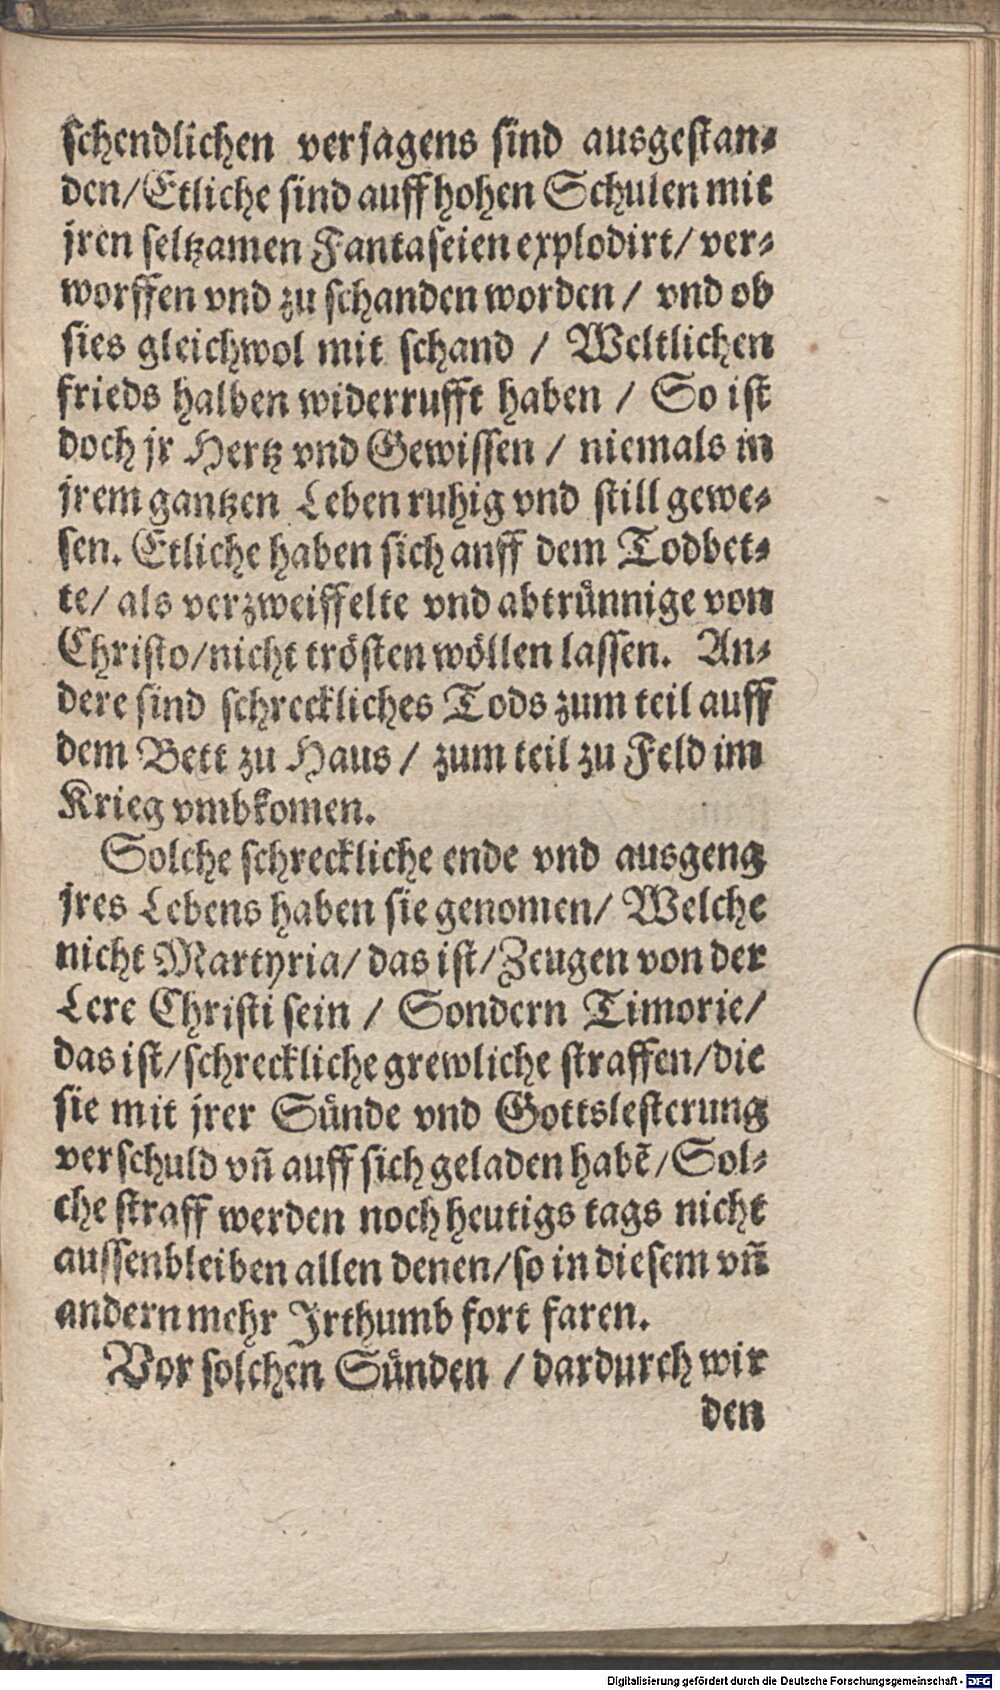 schendlichen versagens sind ausgestan-
den/Etliche sind auff hohen Schulen mit
jren seltzamen Fantaseien explodirt/ ver-
worffen vnd zu schanden worden / vnd ob
sies gleichwol mit schand / Weltlichen
frieds halben widerrufft haben / So ist
doch jr Hertz vnd Gewissen / niemals in
jrem gantzen Leben ruhig vnd still gewe-
sen. Etliche haben sich anff dem Todbet-
te/ als verzweiffelte vnd abtrünnige von
Christo/nicht trösten wöllen lassen. An-
dere sind schreckliches Tods zum teil auff
dem Bett zu Haus / zum teil zu Feld im
Krieg vmbkomen.
Solche schreckliche ende vnd ausgeng
jres Lebens haben sie genomen/ Welche
nicht Martyria/ das ist/Zeugen von der
Lere Christi sein / Sondern Timorie/
das ist/schreckliche grewliche straffen/die
sie mit jrer Sünde vnd Gottslesterung
verschuld vñ auff sich geladen habẽ/Sol-
che straff werden noch heutigs tags nicht
aussenbleiben allen denen/so in diesem vñ
andern mehr Irthumb fort faren.
Vor solchen Sünden / dardurch wir
den
Digitalisierung gefördert durch die Deutsche Forschungsgemeinschaft - DFG